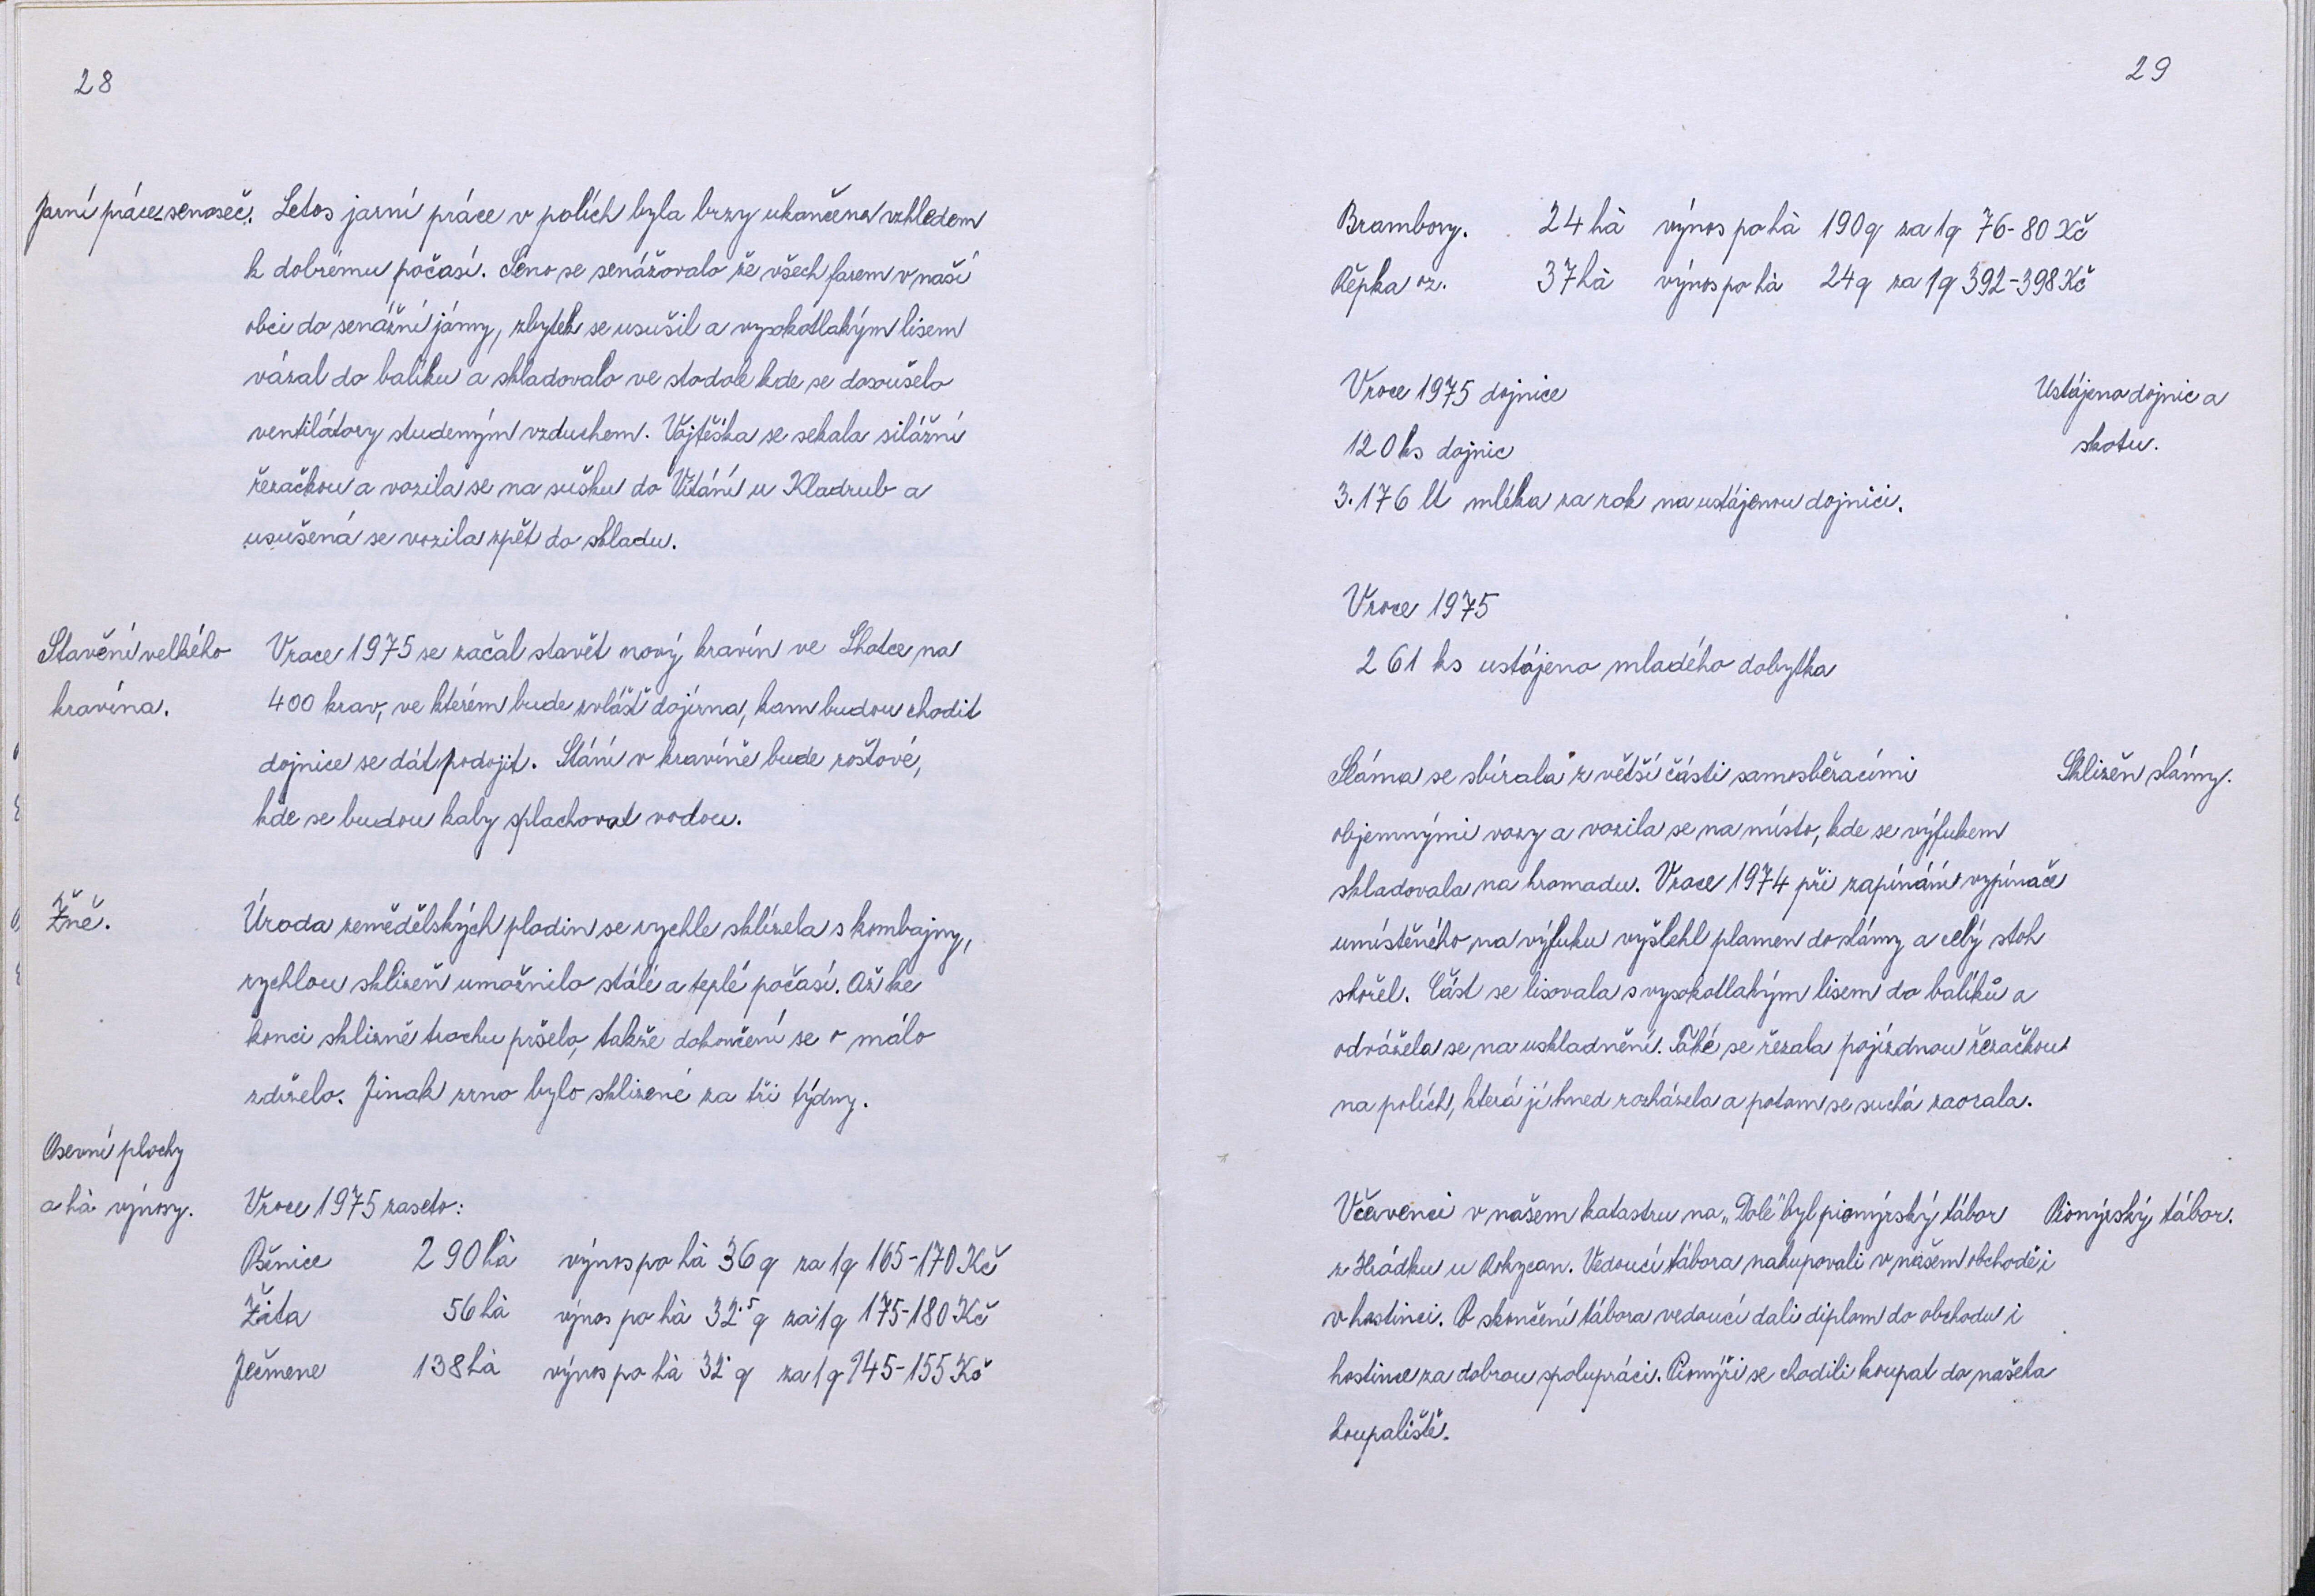 28
Jarní práce-senoseč. Letos jarní práce v polích byla brzy ukončena vzhledem
k dobrému počasí. Seno se senážovalo že všech farem v naší
obci do senážní jámy, zbytek se usušil a vysokotlakým lisem
vázal do balíku a skladovalo ve stodole kde se dosoušelo
ventilátory studeným vzduchem. Vojtěška se sekala silážní
řezačkou a vozila se na sušku do Vštání u Kladrub a
usušená se vozila zpět do skladu.
Stavění velkého Vroce 1975 se začal stavět nový kravín ve Lhotce na
kravína. 400 krav, ve kterém bude zvlášť dojírna, kam budou chodit
dojnice se dát podojit. Stání v kravíně bude roštové,
kde se budou kaly splachovat vodou.
Žně. Úroda zemědělských plodin se rychle sklízela s kombajny,
rychlou sklizeň umožnilo stálé a teplé počasí. Až ke
konci sklizně trochu pršelo, takže dokončení se o málo
zdrželo. Jinak zrno bylo sklizené za tři týdny.
Osevní plochy
a hà výnosy. Vroce 1975 zaseto:
Pšenice 290 hà výnos po hà 36 q za 1q 165-170 Kč
Žita 56 hà výnos po hà 32.5 q za 1q 175-180 Kč
Ječmene 138 hà výnos po hà 32 q za 1q 145-155 Kč
29
Brambory. 24 hà výnos po hà 190q za 1q 76-80 Kč
Řépka oz. 37 hà výnos po hà 24q za 1q 392-398 Kč
Vroce 1975 dojnice Ustájeno dojnic a
120 ks dojnic skotu.
3.176 lt mléka za rok na ustájenou dojnici.
Vroce 1975
261 ks ustájeno mladého dobytka
Sláma se sbírala z větší části samosběracími Sklizěň slámy.
objemnými vozy a vozila se na místo, kde se výfukem
skladovala na hromadu. Vroce 1974 při zapínání vypínače
umístěného na výfuku vyšlehl plamen do slámy a celý stoh
shořel. Část se lisovala s vysokotlakým lisem do balíků a
odvážela se na uskladnění. Také se řezala pojízdnou řezačkou
na polích, která jí hned rozházela a potom se suchá zaorala.
Včevenci v našem katastru na „Dolé" byl pionýrský tábor Pionýrský tábor.
z Hrádku u Rokycan. Vedoucí tábora nakupovali v našem obchodě i
v hostinci. Po skončení tábora vedoucí dali diplom do obchodu i
hostince za dobrou spolupráci. Pionýři se chodili koupat do našeho
koupaliště.